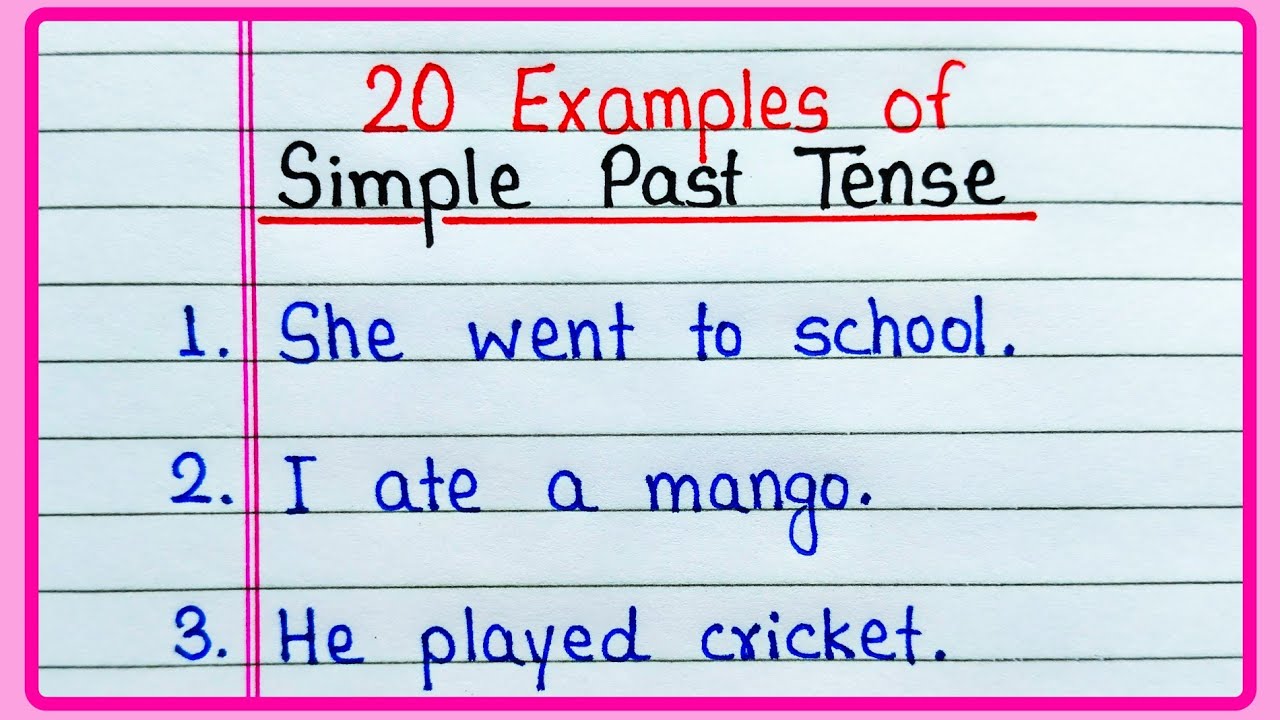 20 Examples of
Simple Past Tense
1. She went to school.
2. I ate a mango.
3. He played cricket.